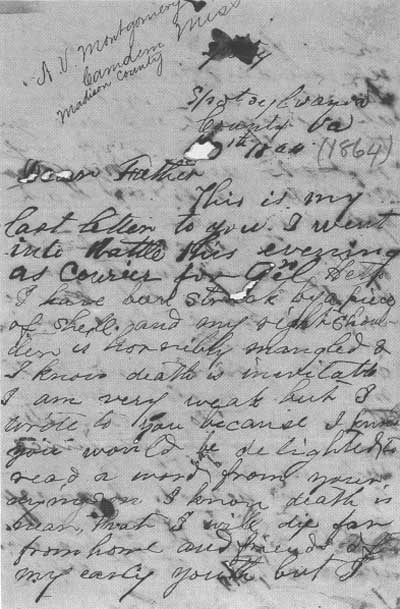 A. V. Montgomery
Camden Miss
Madison County
Spotsylvania
County Va
10th 1864 (1864)
Dear Father
This is my
last letter to you. I went
into Battle this evening
as Courier for Gen'l Heth
I have been struck by a piece
of Shell. and my right Shoul-
der is horribly mangled &
I know death is inevitable
I am very weak but I
write to you because I know
you would be delighted to
read a word from your
dying son I know death is
near, that I will die far
from home and friends of
my early youth but I